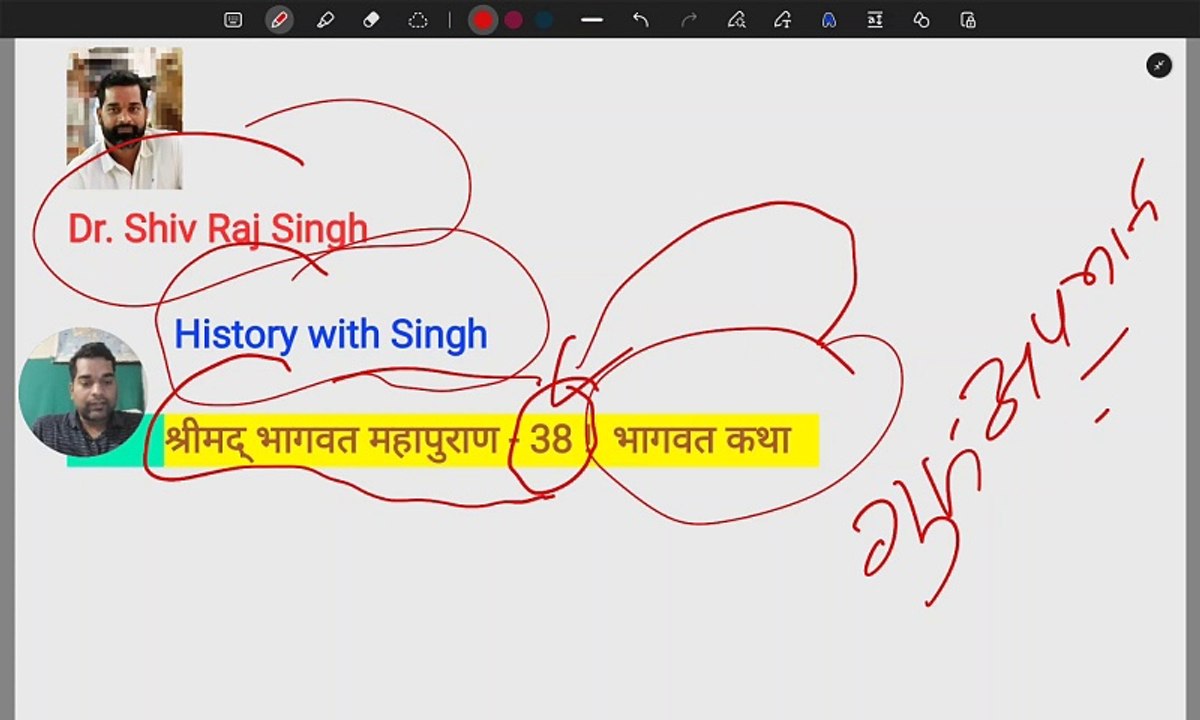 Dr. Shiv Raj Singh
History with Singh
श्रीमद् भागवत महापुराण - 38 | भागवत कथा